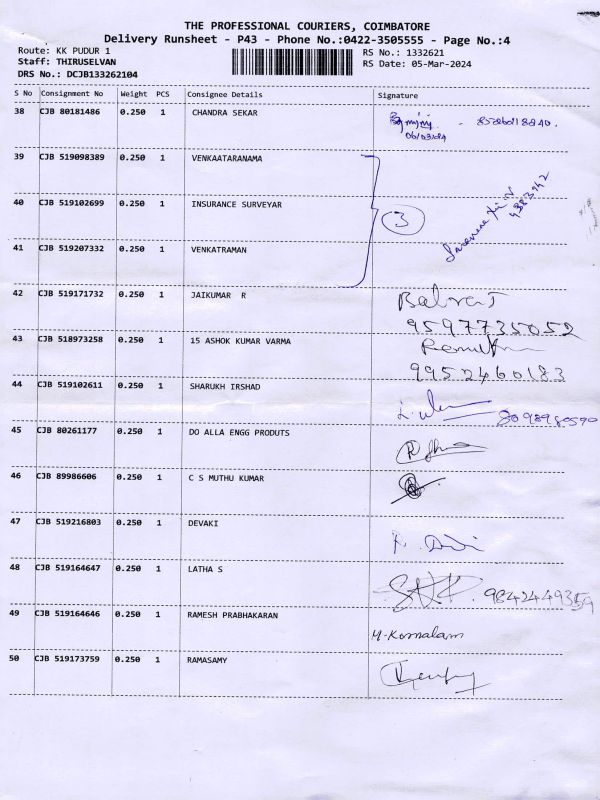 THE PROFESSIONAL COURIERS, COIMBATORE
Delivery Runsheet - P43 - Phone No.:0422-3505555 - Page No.:4
Route: KK PUDUR 1
RS No.: 1332621
Staff: THIRUSELVAN
RS Date: 05-Mar-2024
DRS No.: DCJB133262104
S No Consignment No Weight PCS Consignee Details Signature
38 CJB 80181486 0.250 1 CHANDRA SEKAR
06/03/24
39 CJB 519098389 0.250 1 VENKAATARANAMA
40 CJB 519102699 0.250 1 INSURANCE SURVEYAR
3
41 CJB 519207332 0.250 1 VENKATRAMAN
42 CJB 519171732 0.250 1 JAIKUMAR R
9597735052
43 CJB 518973258 0.250 1 15 ASHOK KUMAR VARMA
9952460183
44 CJB 519102611 0.250 1 SHARUKH IRSHAD
8098980590
45 CJB 80261177 0.250 1 DO ALLA ENGG PRODUTS
46 CJB 89986606 0.250 1 C S MUTHU KUMAR
47 CJB 519216803 0.250 1 DEVAKI
48 CJB 519164647 0.250 1 LATHA S
9842449359
49 CJB 519164646 0.250 1 RAMESH PRABHAKARAN
M. Komalam
50 CJB 519173759 0.250 1 RAMASAMY